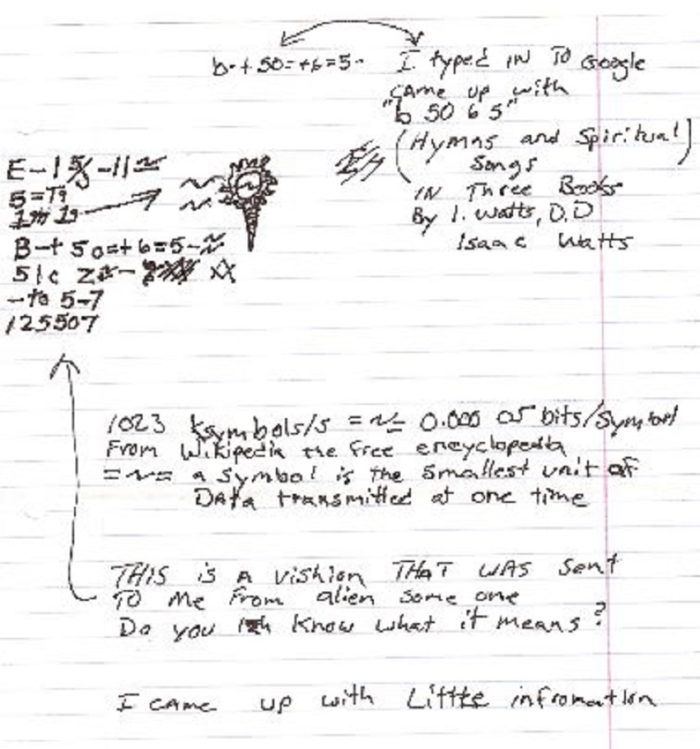 b-+50=+6=5- I typed IN TO Google
CAME up with
"b 50 6 5"
(Hymns and Spiritual)
Songs
IN Three Books
By I. Watts, D.D
Isaac Watts
E-1 -11
5=
B-+50=+6=5-
51c
-to 5-7
125507
1023 Ksymbols/s =~= 0.000 05 bits/Symbol
From Wikipedia the free encyclopedia
=~= a symbol is the smallest unit of
DATA transmitted at one time
THIS is A vishion THAT WAS sent
TO Me From alien some one
Do you Know what it means?
I came up with Little infromation